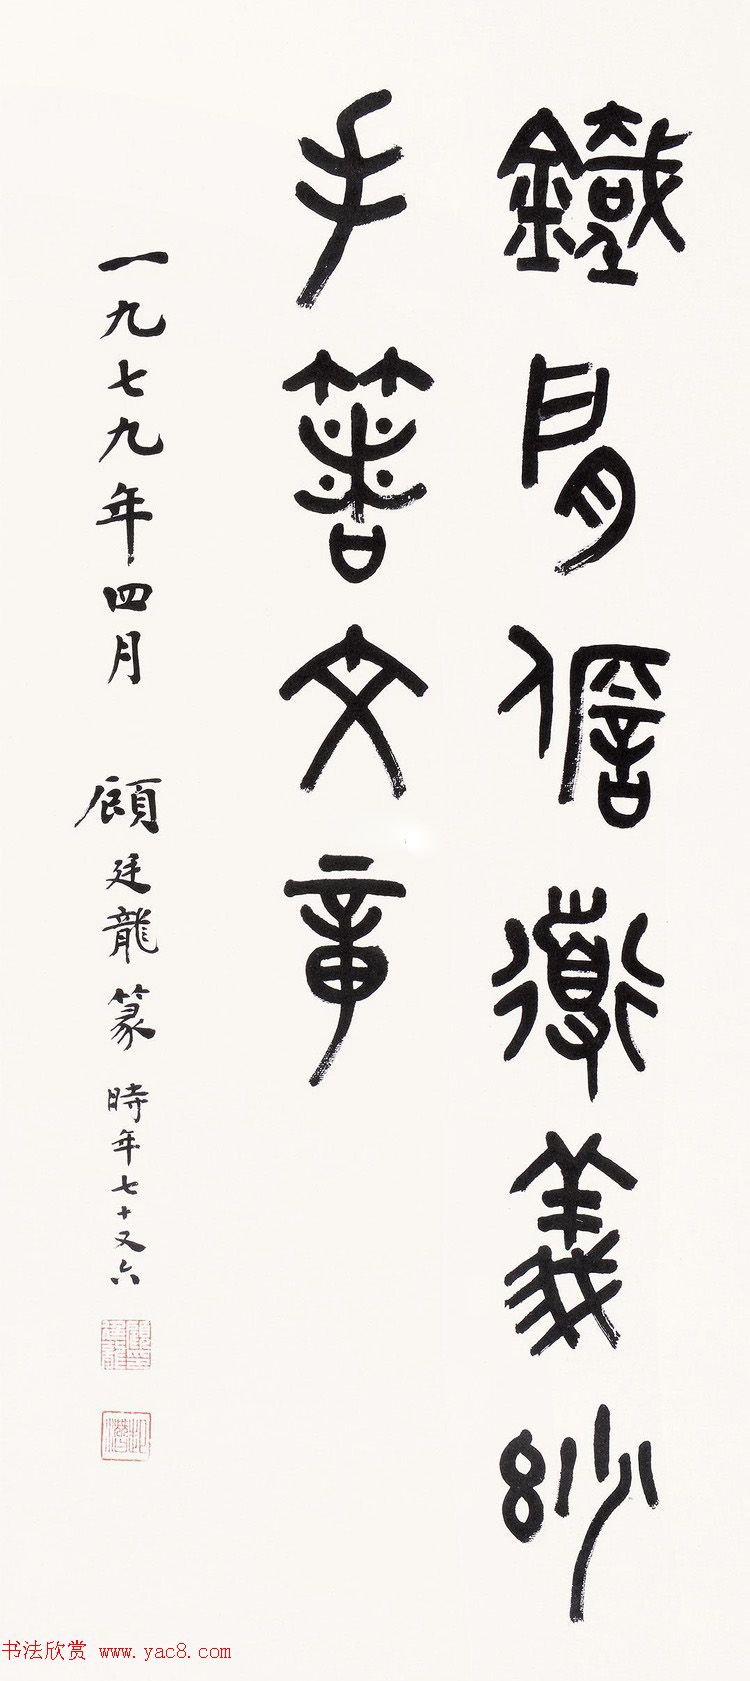 鐵肩儋衟義玅
手箸文章
一九七九年四月 顧廷龍篆 時年七十又六
书法欣赏 www.yac8.com